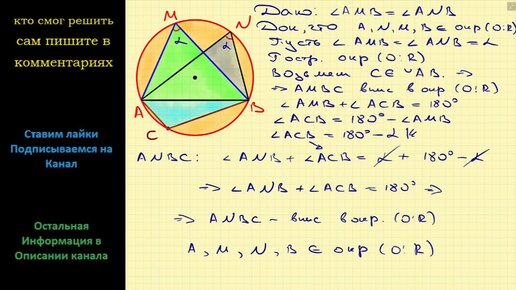 кто смог решить
сам пишите в
комментариях
Ставим лайки
Подписываемся на
Канал
Остальная
Информация в
Описании канала
M
N
α
α
A
B
C
Дано: ∠AMB = ∠ANB
Док, что A, N, M, B ∈ окр (O;R)
Пусть ∠AMB = ∠ANB = α
Постр. окр (O;R)
Возьмем C ∈ ◡AB. ⇒
⇒ AMBC впис в окр (O;R)
∠AMB + ∠ACB = 180°
∠ACB = 180° - ∠AMB
∠ACB = 180° - α
ANBC: ∠ANB + ∠ACB = α + 180° - α
⇒ ∠ANB + ∠ACB = 180° ⇒
⇒ ANBC - впис в окр. (O;R)
A, M, N, B ∈ окр (O;R)